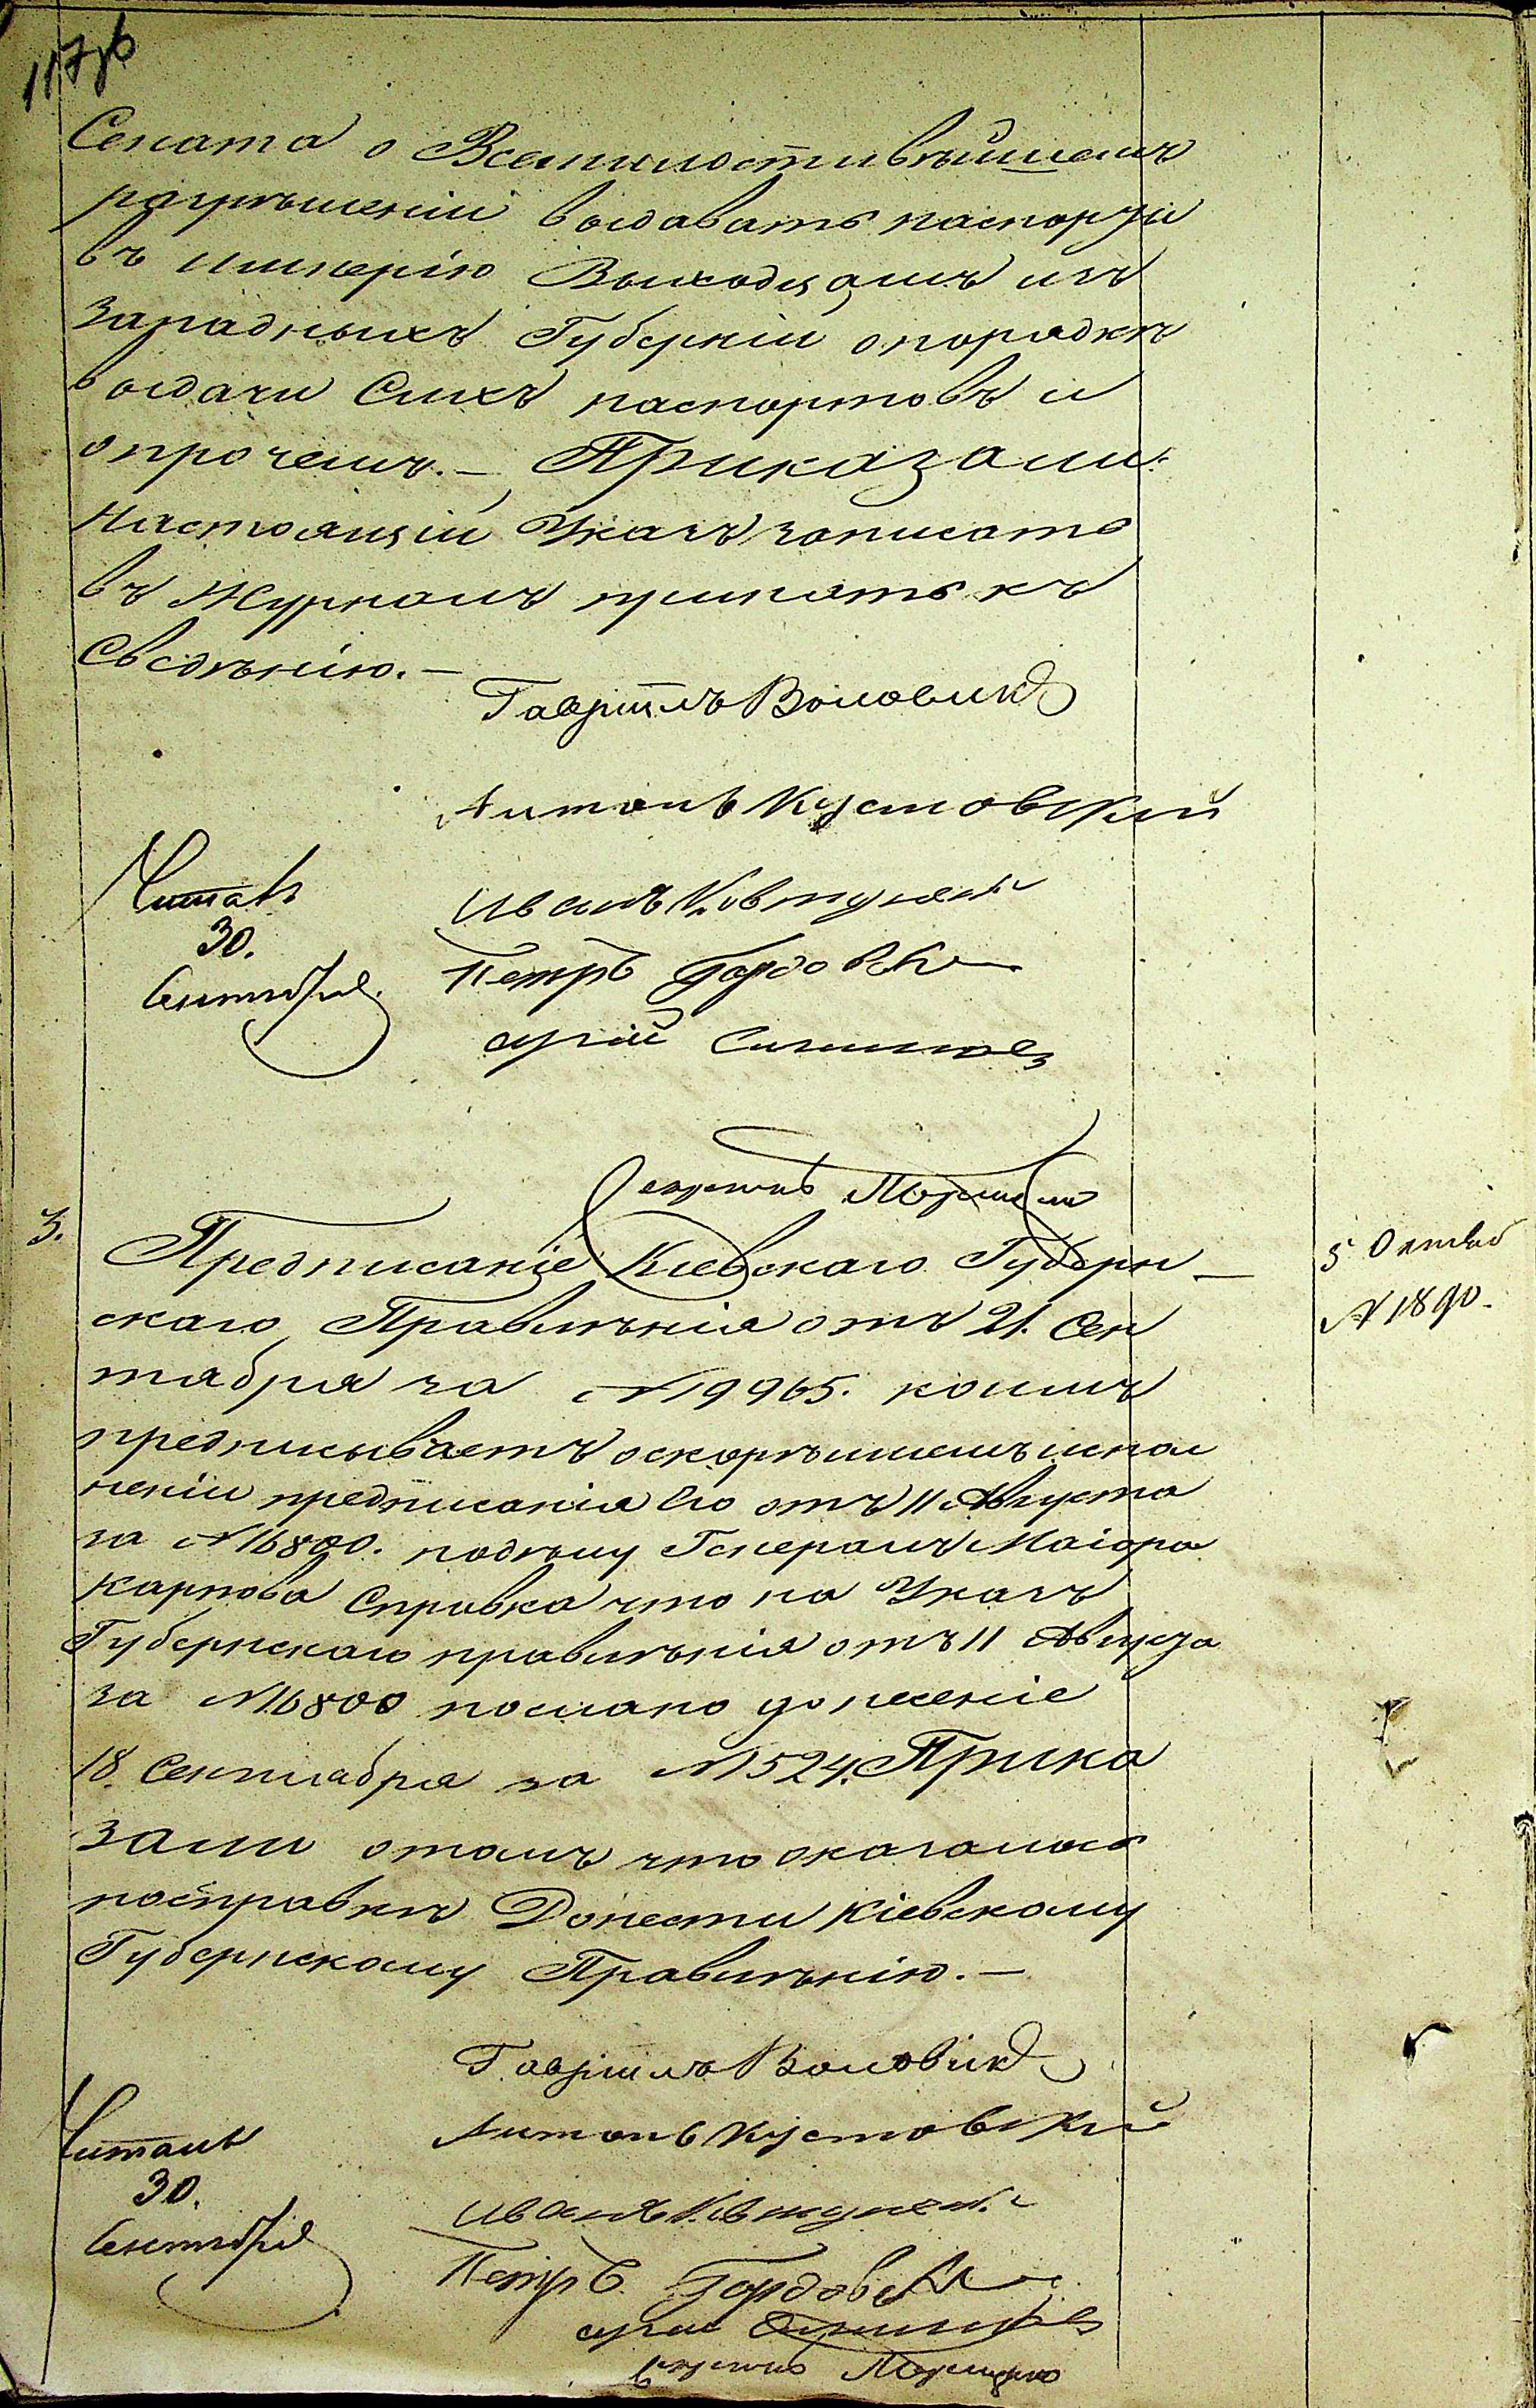 Сената о Всемилостивѣйшемъ
разрѣшеніи выдавать паспорты
въ имперію Выходцамъ изъ
Западныхъ Губерніи о порядкѣ
выдачи Сихъ паспортовъ и
о прочемъ.— Приказали:
Настоящій Указъ записать
въ Журналъ принять къ
Сведѣнію.—
Гавріилъ Воловикъ
Антонъ Кустовскій
Читалъ
30.
Сентября
Иванъ
Петръ
Секретарь
3.
Предписаніе Кіевскаго Губерн—
скаго Правленія отъ 21. Сен
тября за № 19965. коимъ
предписываетъ о скорѣйшемъ испол
неніи предписанія Его отъ 11 Августа
за № 16800. по дѣлу Генералъ Маіора
Карпова Справка что на Указъ
Губернскаго правленія отъ 11 Августа
за № 16800 послано донесеніе
18. Сентября за № 1524. Прика
зали о томъ что оказалось
по справкѣ Донести Кіевскому
Губернскому Правленію.—
5 Октяб
№ 1890.
Гавріилъ Воловікъ
Антонъ Кустовскій
Читалъ
30.
Сентября
Иванъ
Петръ
Секретарь